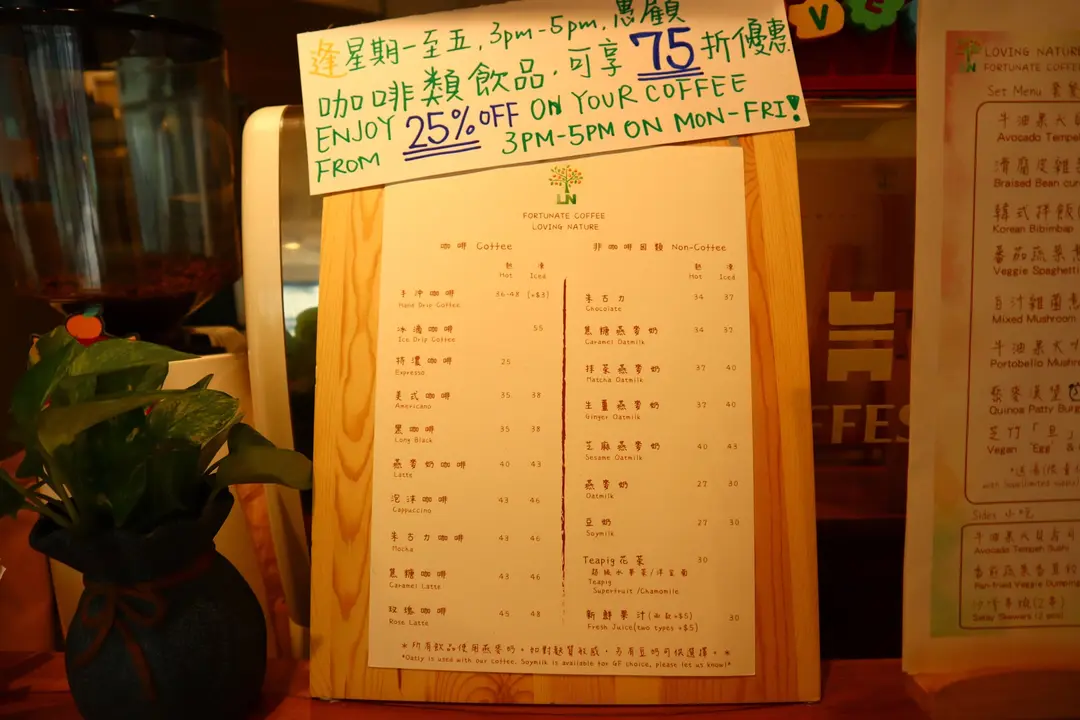 逢星期一至五,3pm-5pm,惠顧
咖啡類飲品,可享75折優惠
ENJOY 25% OFF ON YOUR COFFEE
FROM 3PM-5PM ON MON-FRI!
LN
FORTUNATE COFFEE
LOVING NATURE
咖啡 Coffee
熱 凍
Hot Iced
手沖咖啡 36-48 (+$3)
Hand Drip Coffee
冰滴咖啡 55
Ice Drip Coffee
特濃咖啡 25
Espresso
美式咖啡 35 38
Americano
黑咖啡 35 38
Long Black
燕麥奶咖啡 40 43
Latte
泡沫咖啡 43 46
Cappuccino
朱古力咖啡 43 46
Mocha
焦糖咖啡 43 46
Caramel Latte
玫瑰咖啡 45 48
Rose Latte
非咖啡因類 Non-Coffee
熱 凍
Hot Iced
朱古力 34 37
Chocolate
焦糖燕麥奶 34 37
Caramel Oatmilk
抹茶燕麥奶 37 40
Matcha Oatmilk
生薑燕麥奶 37 40
Ginger Oatmilk
芝麻燕麥奶 40 43
Sesame Oatmilk
燕麥奶 27 30
Oatmilk
豆奶 27 30
Soymilk
Teapig花茶 30
超級水果茶/洋甘菊
Teapig
Superfruit /Chamomile
新鮮果汁(兩款+$5) 30
Fresh Juice(two types +$5)
*所有飲品使用燕麥奶。如對麩質敏感,另有豆奶可供選擇。*
*Oatly is used with our coffee. Soymilk is available for GF choice, please let us know!*
V E
LOVING NATURE
FORTUNATE COFFEE
Set Menu 套餐
牛油果大
Avocado Tempeh
滑腐皮雞
Braised Bean cur
韓式拌飯
Korean Bibimbap
番茄蔬果意
Veggie Spaghetti
白汁雜菌意
Mixed Mushroom
牛油果大
Portobello Mushr
藜麥漢堡
Quinoa Patty Burg
芝竹「旦」
Vegan "Egg" &
Sides 小吃
牛油果天貝壽司
Avocado Tempeh Sushi
香煎蔬菜
Pan-fried Veggie Dumpling
沙嗲串燒(2串)
Satay Skewers (2 pcs)
FFES